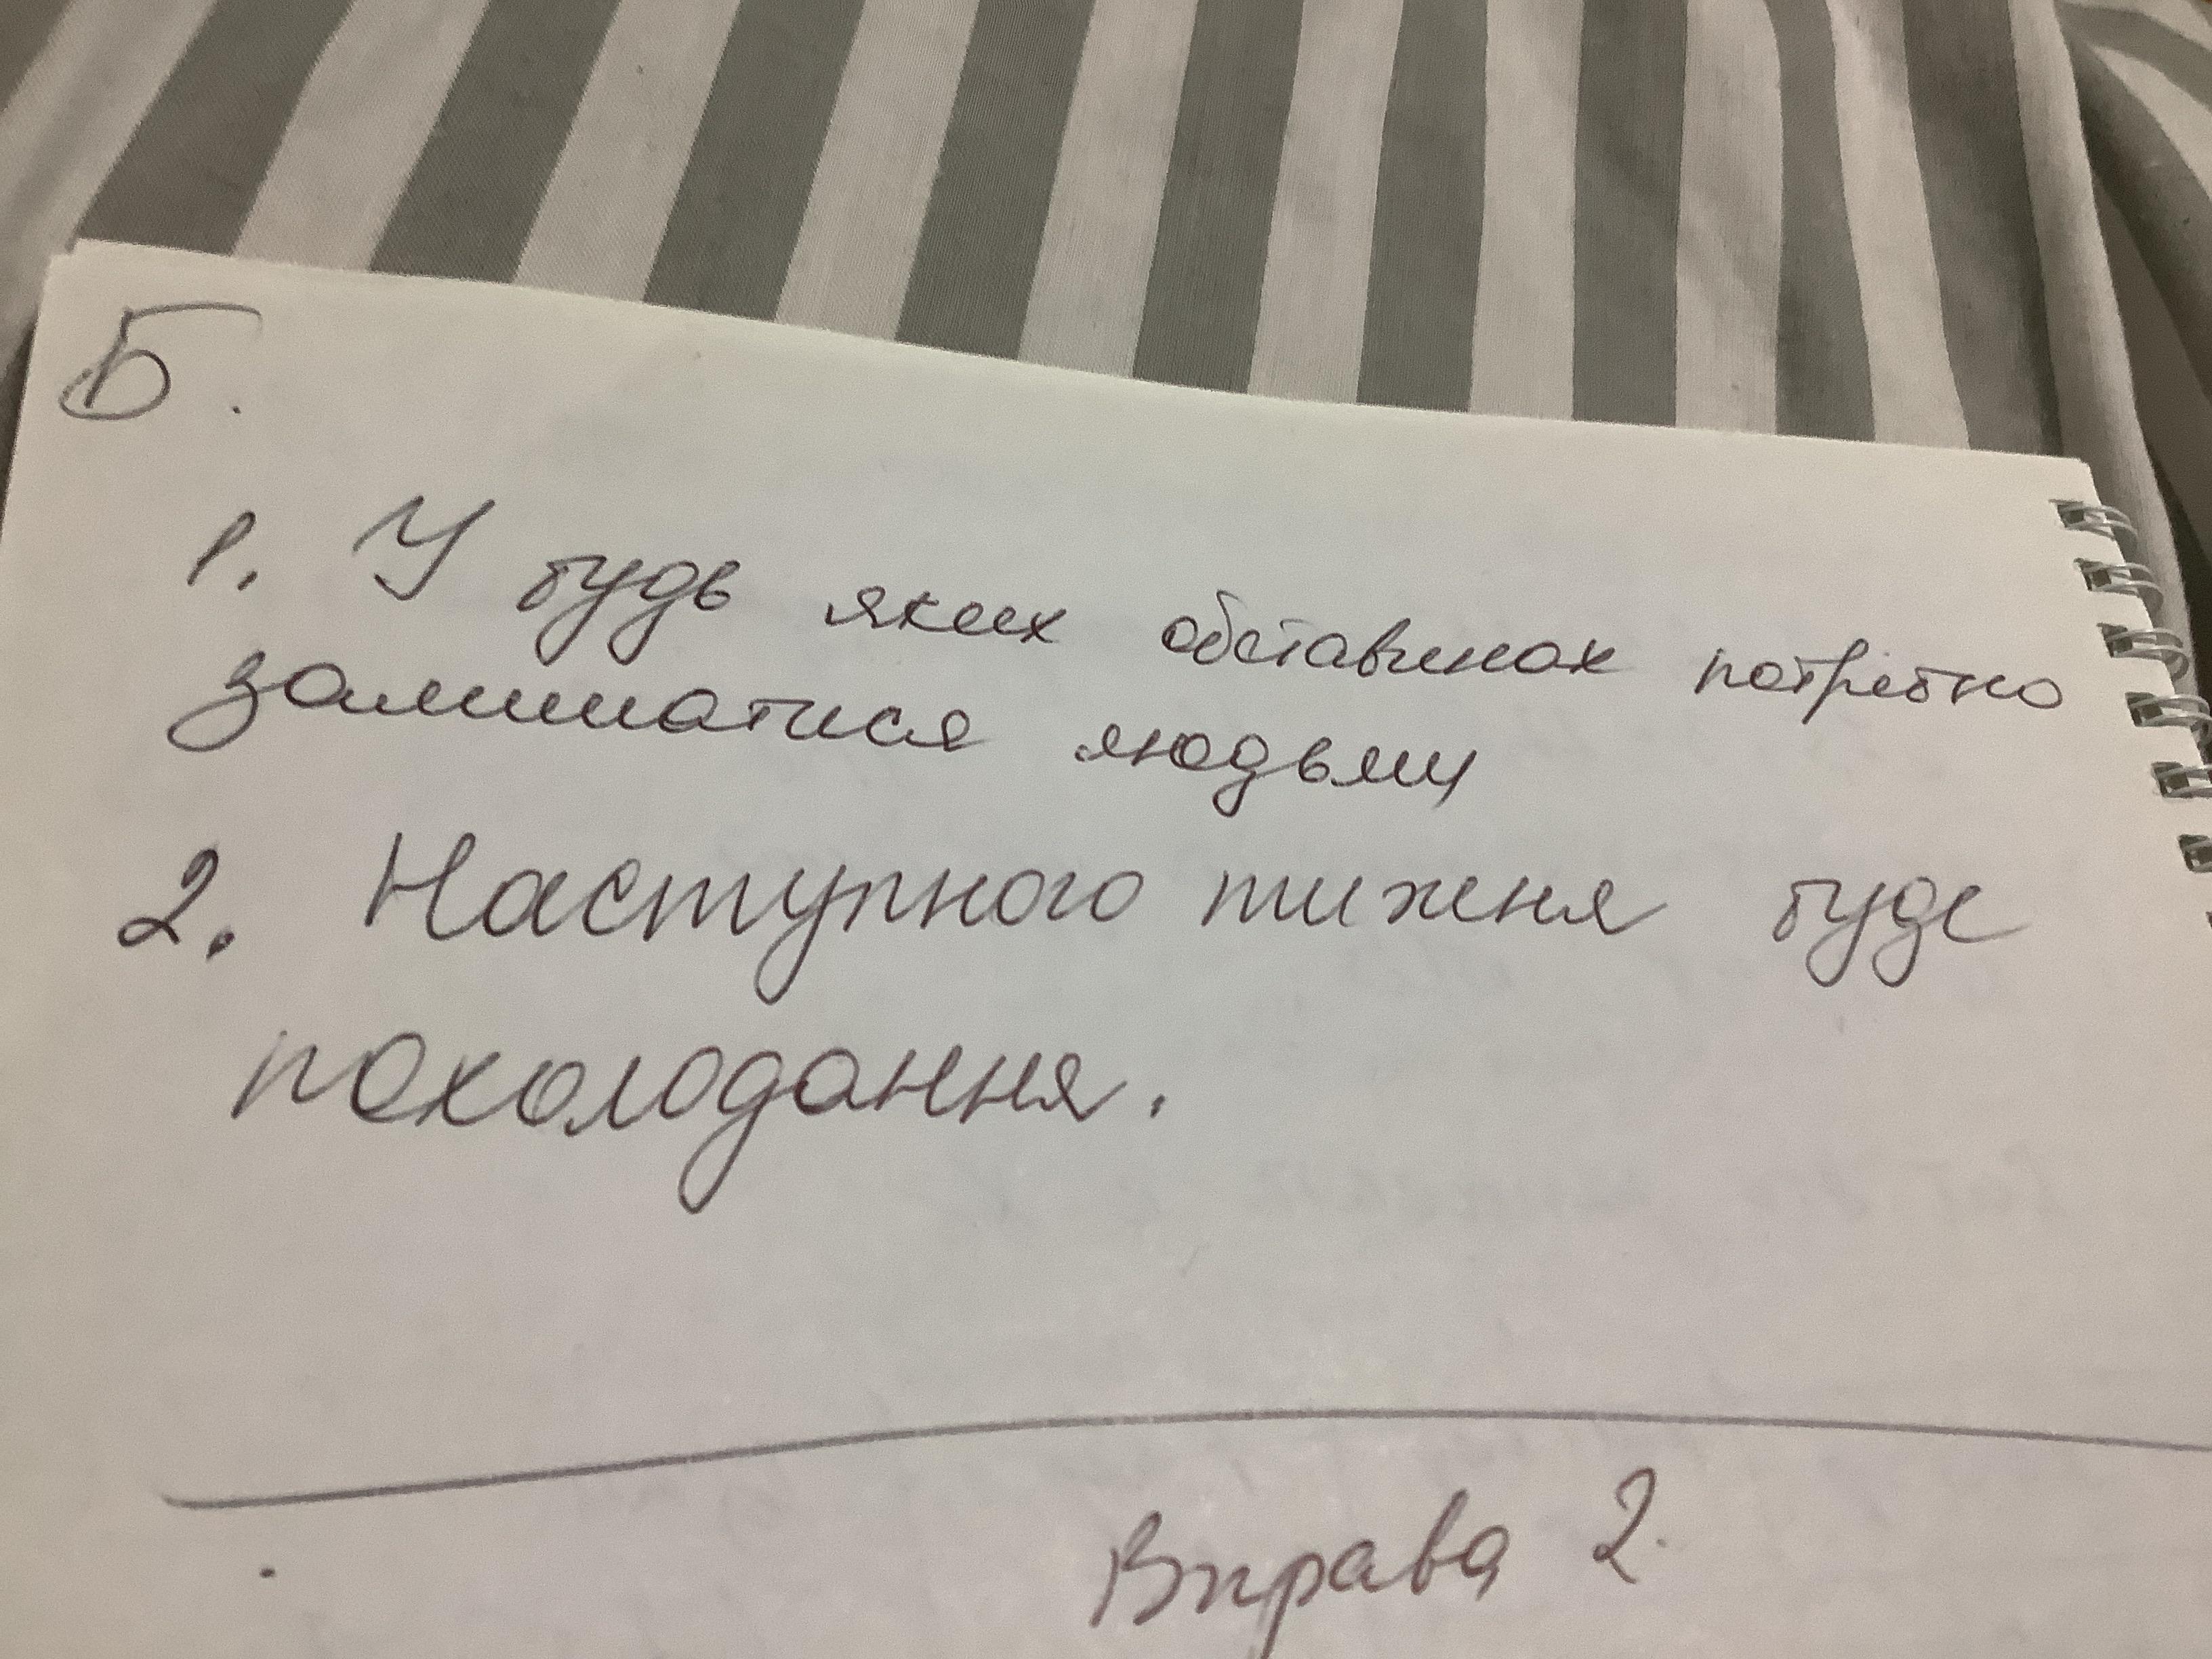 Б.
1. У будь яких обставинах потрібно
залишатися людьми
2. Наступного тижня буде
похолодання.
Вправа 2.